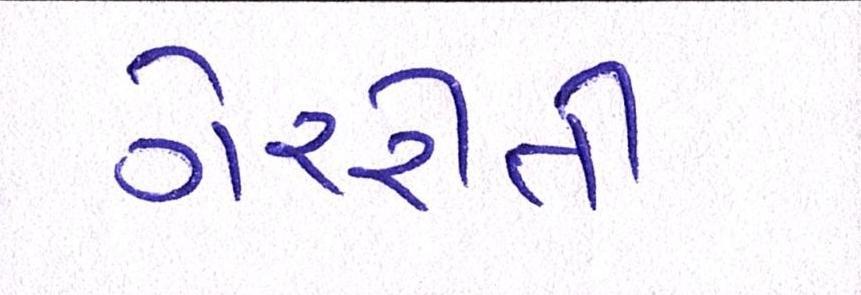 ગેરરીતી